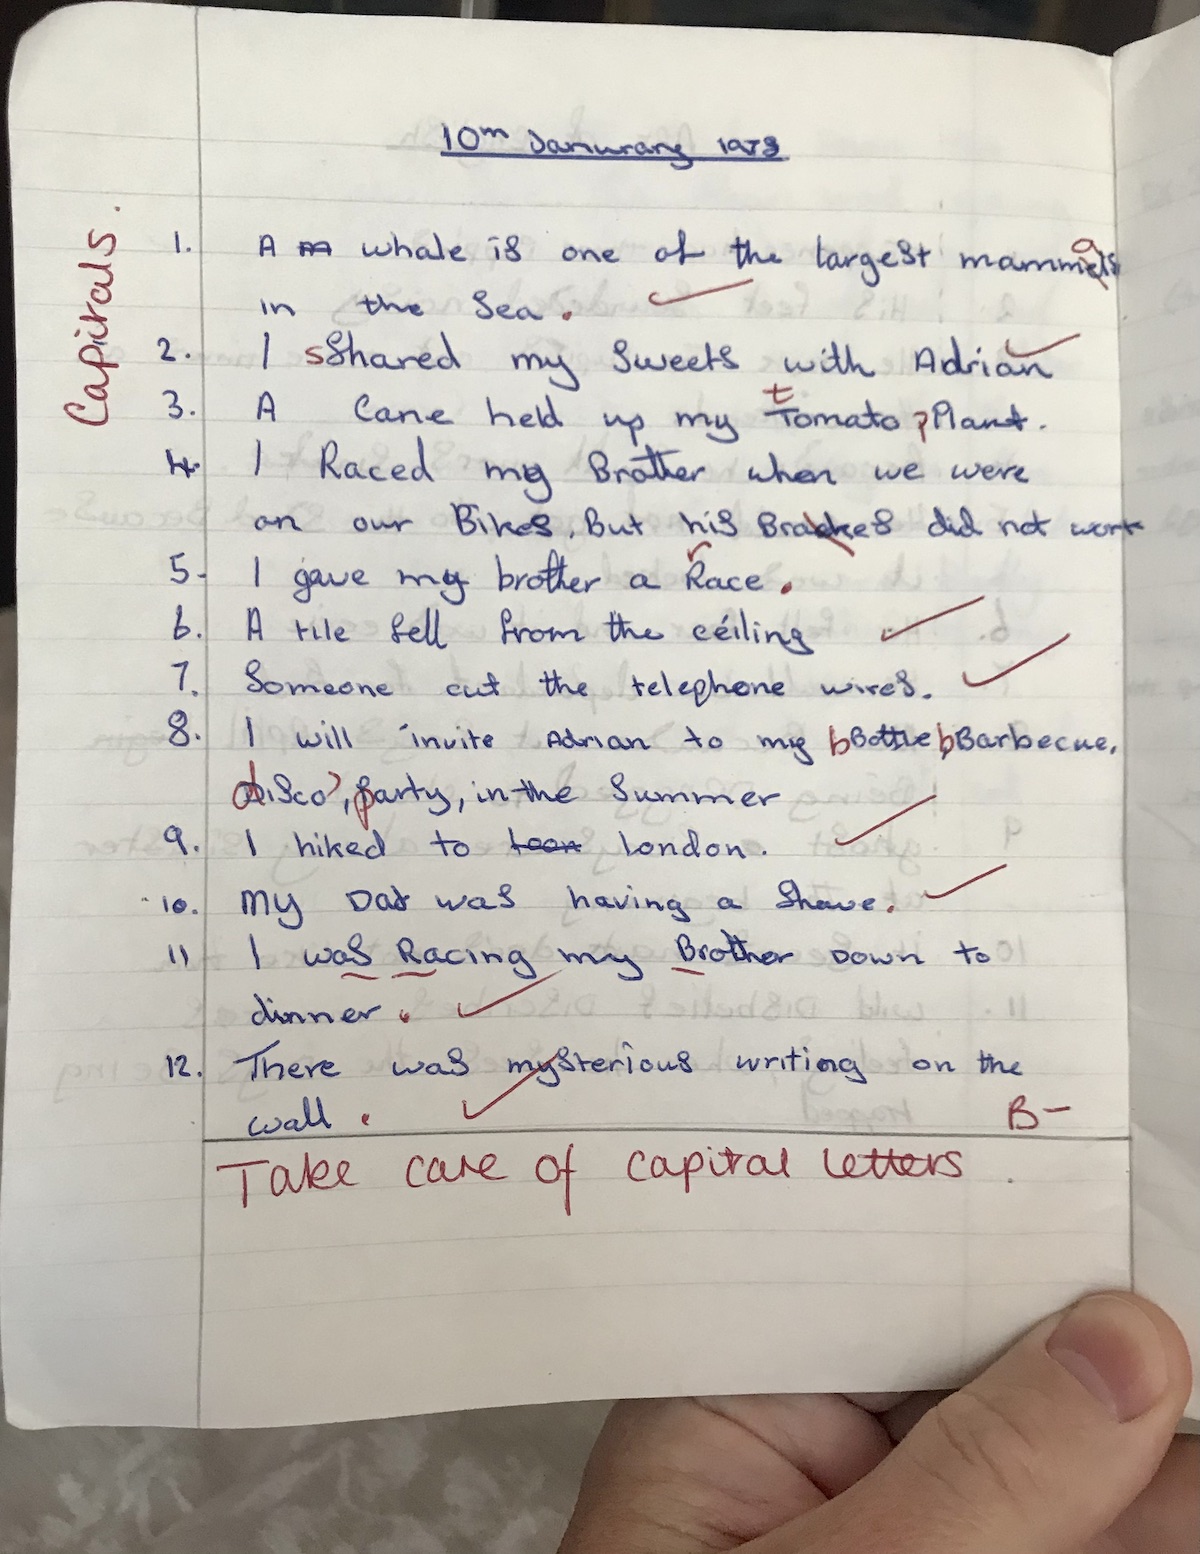 10th Januurary 1973
Capitals.
1. A m whale is one of the largest mammels
in the Sea.
2. I sShared my Sweets with Adrian
3. A Cane held up my tTomato pPlant.
4. I Raced my Brother when we were
on our Bikes, But his Brakes did not work
5. I gave my brother a rRace.
6. A tile fell from the ceiling
7. Someone cut the telephone wires.
8. I will invite Adrian to my bBottle bBarbecue,
disco, party, in the Summer
9. I hiked to london.
10. My Dad was having a Shave.
11 I was Racing my Brother Down to
dinner.
12. There was mysterious writing on the
wall.
B-
Take care of capital letters.